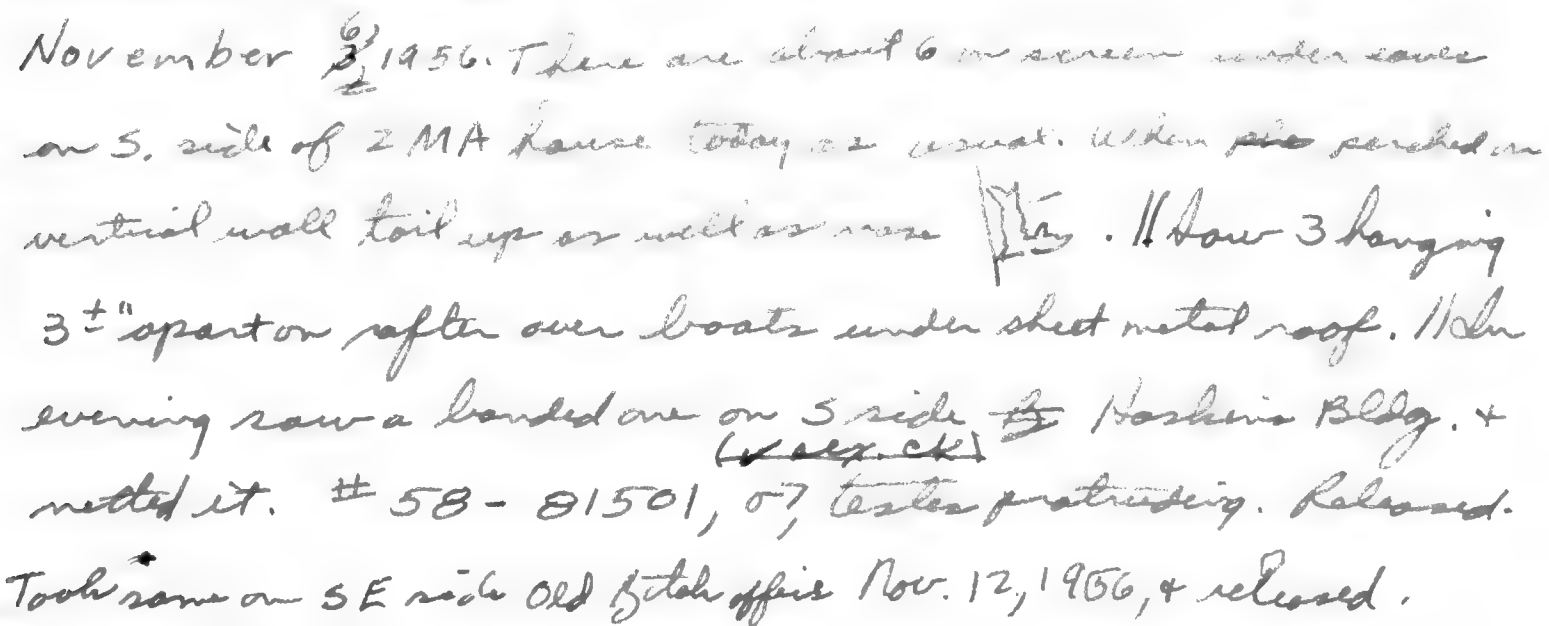 November 6, 1956. There are about 6 in screen under eaves
on S. side of 2 MA house today as usual. When perched on
vertical wall tail up as well as nose . // Saw 3 hanging
3±" apart on rafter over boats under sheet metal roof. // In
evening saw a banded one on S side Hoskins Bldg. &
(✓ sex. ck)
netted it. # 58-81501, ♂, testes protruding. Released.
Took same on SE side Old office Nov. 12, 1956, & released.